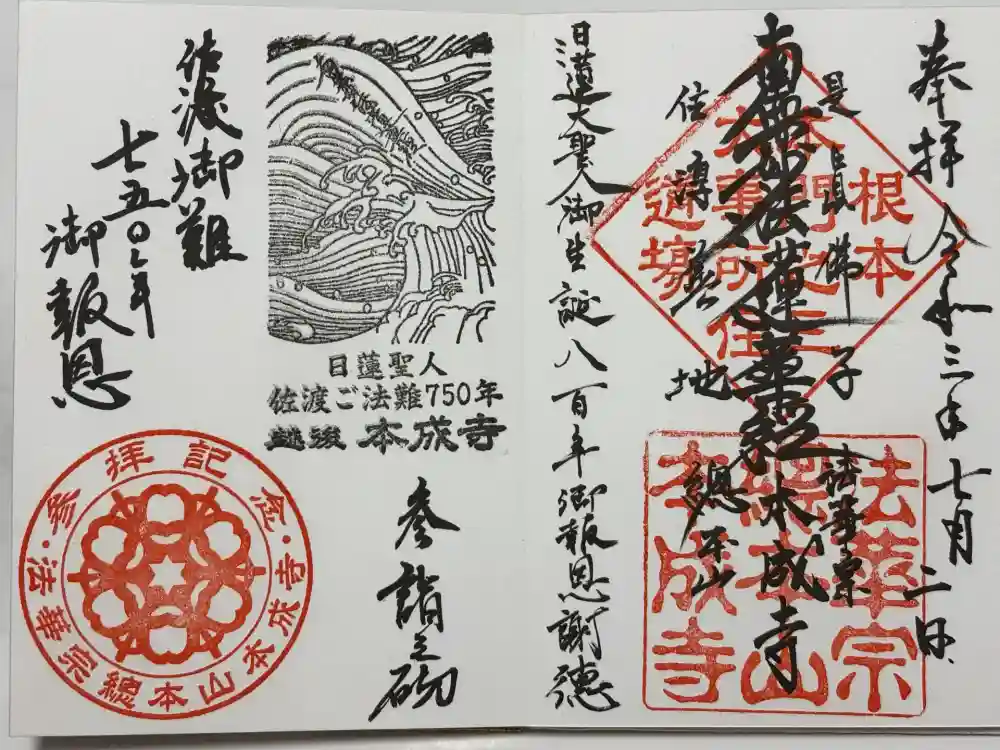 奉拝 令和三年七月二日
是真佛子
南無妙法蓮華経
住淳善地
法華宗
本成寺
總本山
根本
本門
三
事
道場
法華宗
總本山
本成寺
日蓮大聖人御生誕八百年御報恩謝徳
日蓮聖人
佐渡ご法難750年
越後 本成寺
参詣之砌
佐渡御難
七五〇年
御報恩
参拝記念
法華宗總本山本成寺